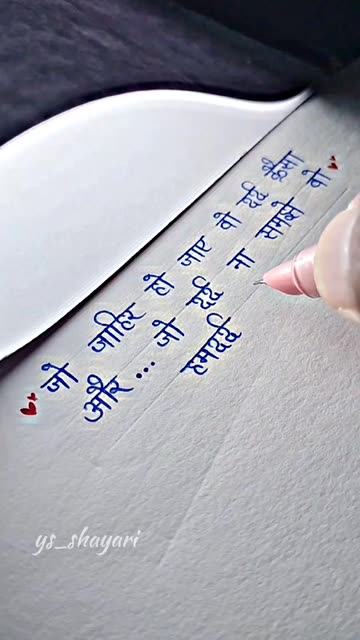 जो जाहिर हो जाए वो दर्द कैसा
और... जो दर्द ना समझे वो
हमदर्द
ys_shayari